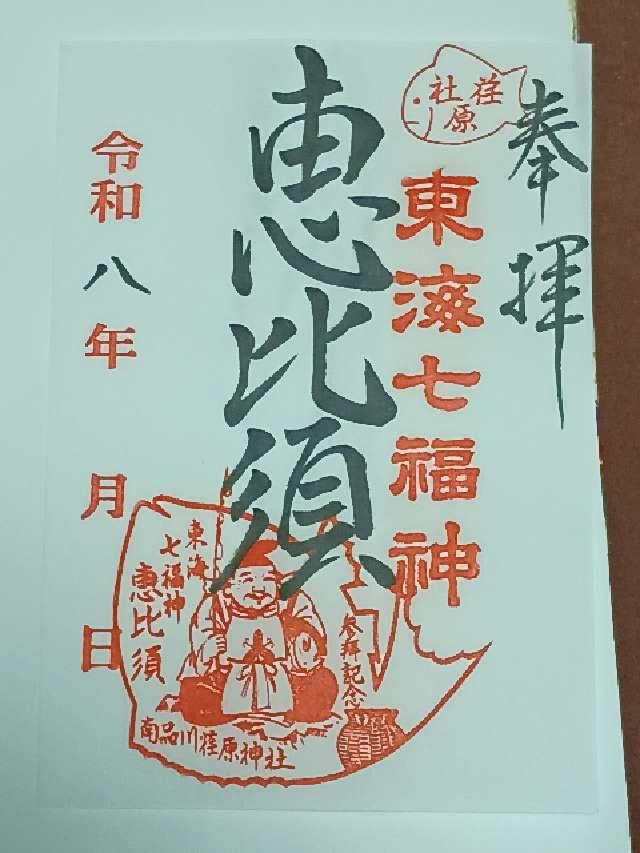 奉拝
荏原
社
東海七福神
恵比須
令和八年 月 日
東海
七福神
恵比須
参拝記念
南品川荏原神社